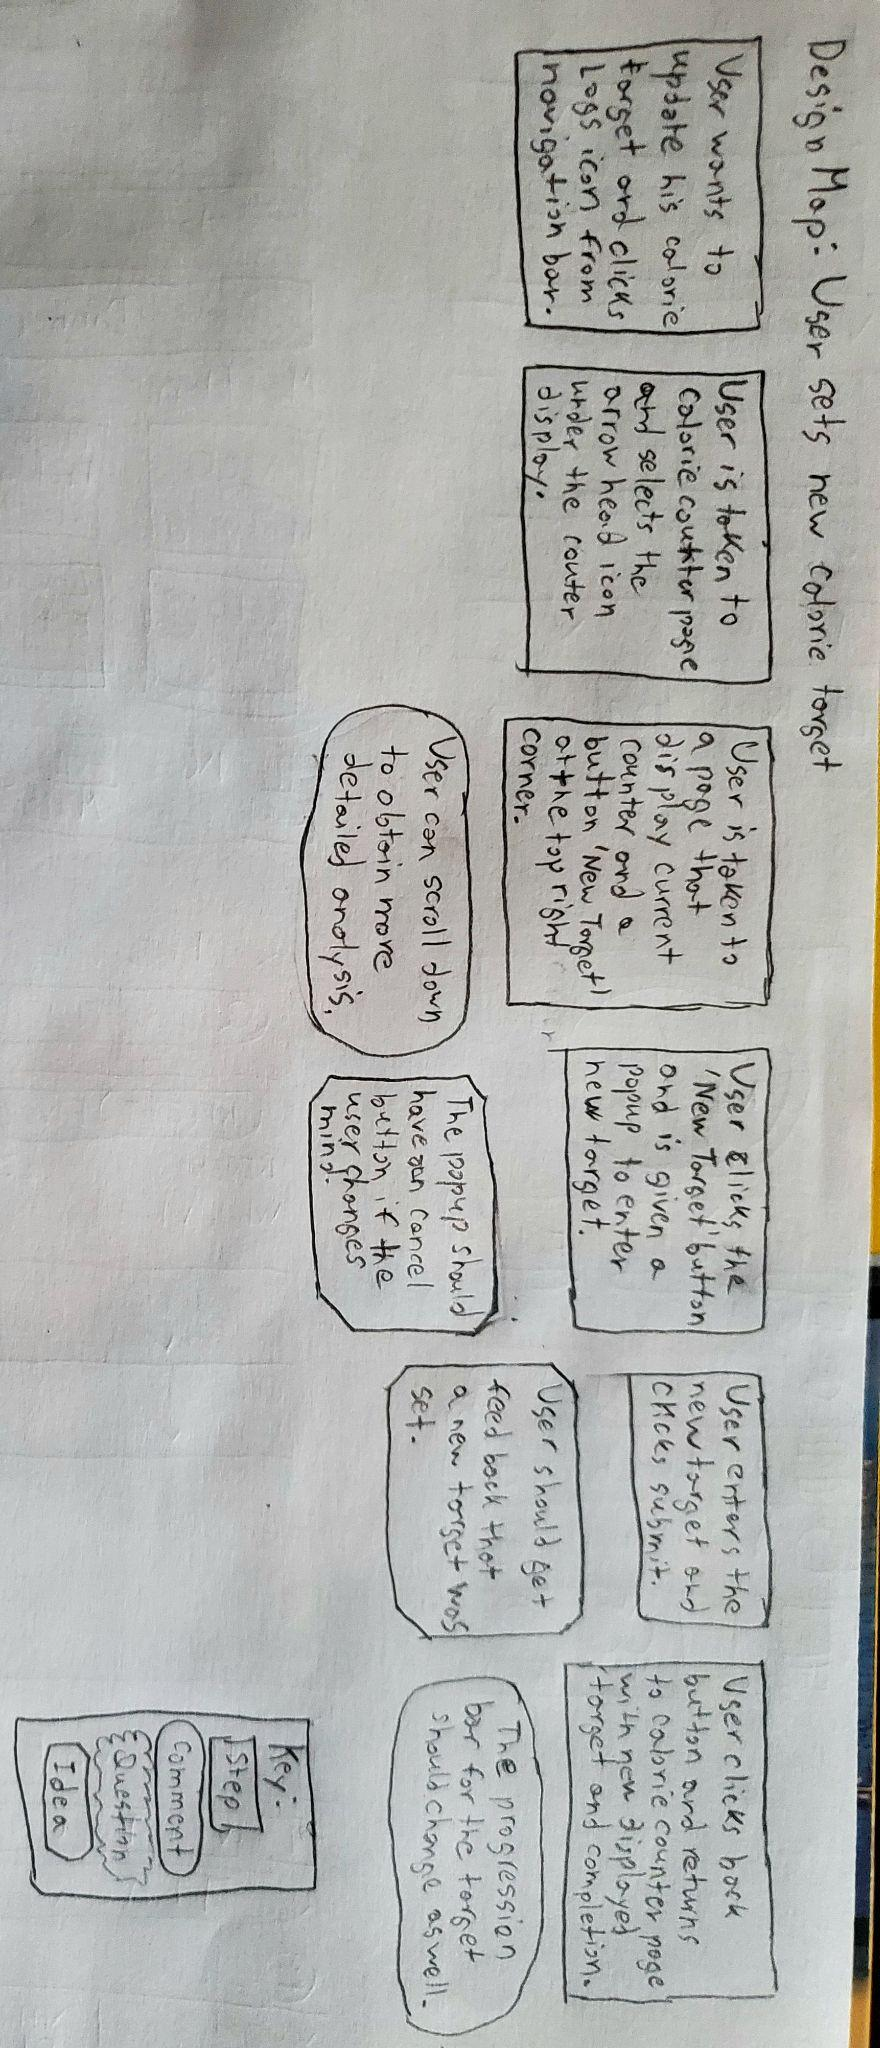 Design Map: User sets new calorie target
User wants to
update his calorie
target and clicks
Logs icon from
navigation bar.
User is taken to
calorie counter page
and selects the
arrow head icon
under the couter
display.
User is taken to
a page that
display current
counter and a
button 'New Target'
at the top right
corner.
User can scroll down
to obtain more
detailed analysis.
User clicks the
'New Target' button
and is given a
popup to enter
new target.
The popup should
have an cancel
button if the
user changes
mind.
User enters the
new target and
clicks submit.
User should get
feedback that
a new target was
set.
User clicks back
button and returns
to calorie counter page
with new displayed
target and completion.
The progression
bar for the target
should change as well.
Key:
Step
Comment
Question
Idea